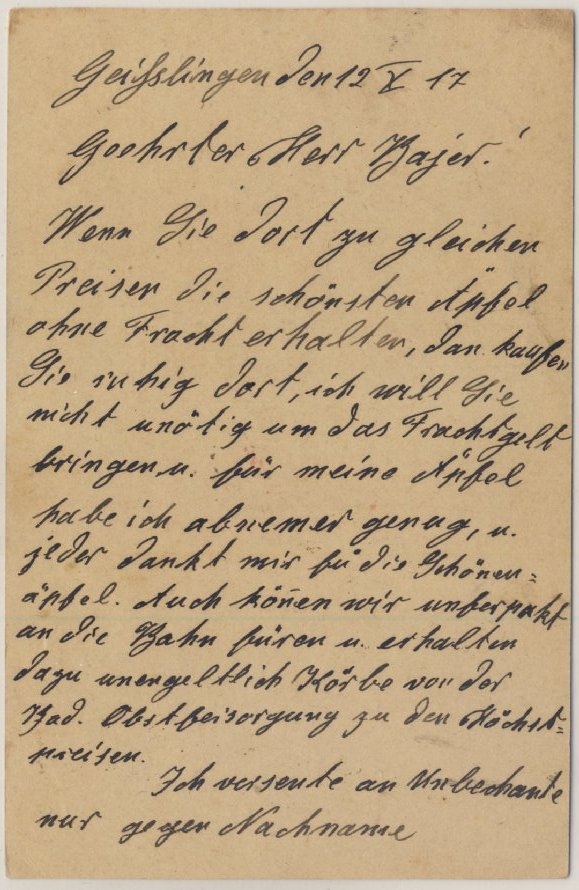 Geisslingen den 12 X 17
Geehrter Herr Bajer!
Wenn Sie dort zu gleichen
Preisen die schönsten Äpfel
ohne Fracht erhalten, dan kaufen
Sie ruhig dort, ich will Sie
nicht unötig um das Frachtgelt
bringen u. für meine Äpfel
habe ich abnemer genug, u.
jeder dankt mir fü die Schönen=
äpfel. Auch könen wir unferpakt
an die Bahn füren u. erhalten
dazu unengeltlich Körbe von der
Bad. Obstfersorgung zu den Höchst=
preisen.
Ich versente an Unbechante
nur gegen Nachname